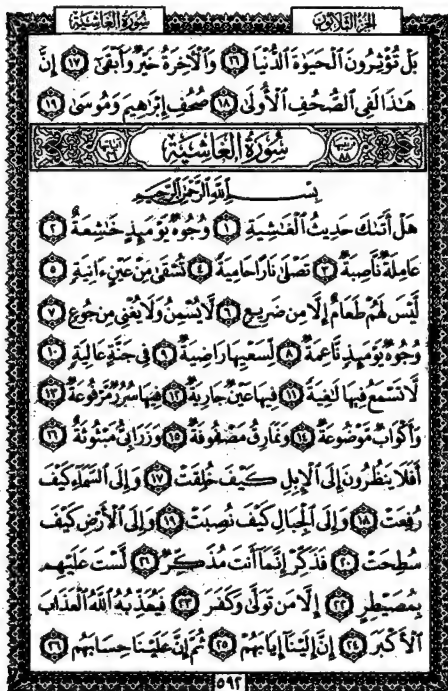 سُورَةُ الغَاشِيَةِ الجُزْءُ الثَّلَاثُونَ
بَلْ تُؤْثِرُونَ ٱلْحَيَوٰةَ ٱلدُّنْيَا ١٦ وَٱلْآخِرَةُ خَيْرٌ وَأَبْقَىٰٓ ١٧ إِنَّ
هَٰذَا لَفِى ٱلصُّحُفِ ٱلْأُولَىٰ ١٨ صُحُفِ إِبْرَٰهِيمَ وَمُوسَىٰ ١٩
ترتيبها ٨٨ سُورَةُ الغَاشِيَةِ آياتها ٢٦
بِسْمِ ٱللَّهِ ٱلرَّحْمَٰنِ ٱلرَّحِيمِ
هَلْ أَتَىٰكَ حَدِيثُ ٱلْغَٰشِيَةِ ١ وُجُوهٌ يَوْمَئِذٍ خَٰشِعَةٌ ٢
عَامِلَةٌ نَّاصِبَةٌ ٣ تَصْلَىٰ نَارًا حَامِيَةً ٤ تُسْقَىٰ مِنْ عَيْنٍ ءَانِيَةٍ ٥
لَّيْسَ لَهُمْ طَعَامٌ إِلَّا مِن ضَرِيعٍ ٦ لَّا يُسْمِنُ وَلَا يُغْنِى مِن جُوعٍ ٧
وُجُوهٌ يَوْمَئِذٍ نَّاعِمَةٌ ٨ لِّسَعْيِهَا رَاضِيَةٌ ٩ فِى جَنَّةٍ عَالِيَةٍ ١٠
لَّا تَسْمَعُ فِيهَا لَٰغِيَةً ١١ فِيهَا عَيْنٌ جَارِيَةٌ ١٢ فِيهَا سُرُرٌ مَّرْفُوعَةٌ ١٣
وَأَكْوَابٌ مَّوْضُوعَةٌ ١٤ وَنَمَارِقُ مَصْفُوفَةٌ ١٥ وَزَرَابِىُّ مَبْثُوثَةٌ ١٦
أَفَلَا يَنظُرُونَ إِلَى ٱلْإِبِلِ كَيْفَ خُلِقَتْ ١٧ وَإِلَى ٱلسَّمَآءِ كَيْفَ
رُفِعَتْ ١٨ وَإِلَى ٱلْجِبَالِ كَيْفَ نُصِبَتْ ١٩ وَإِلَى ٱلْأَرْضِ كَيْفَ
سُطِحَتْ ٢٠ فَذَكِّرْ إِنَّمَآ أَنتَ مُذَكِّرٌ ٢١ لَّسْتَ عَلَيْهِم
بِمُصَيْطِرٍ ٢٢ إِلَّا مَن تَوَلَّىٰ وَكَفَرَ ٢٣ فَيُعَذِّبُهُ ٱللَّهُ ٱلْعَذَابَ
ٱلْأَكْبَرَ ٢٤ إِنَّ إِلَيْنَآ إِيَابَهُمْ ٢٥ ثُمَّ إِنَّ عَلَيْنَا حِسَابَهُم ٢٦
٥٩٢